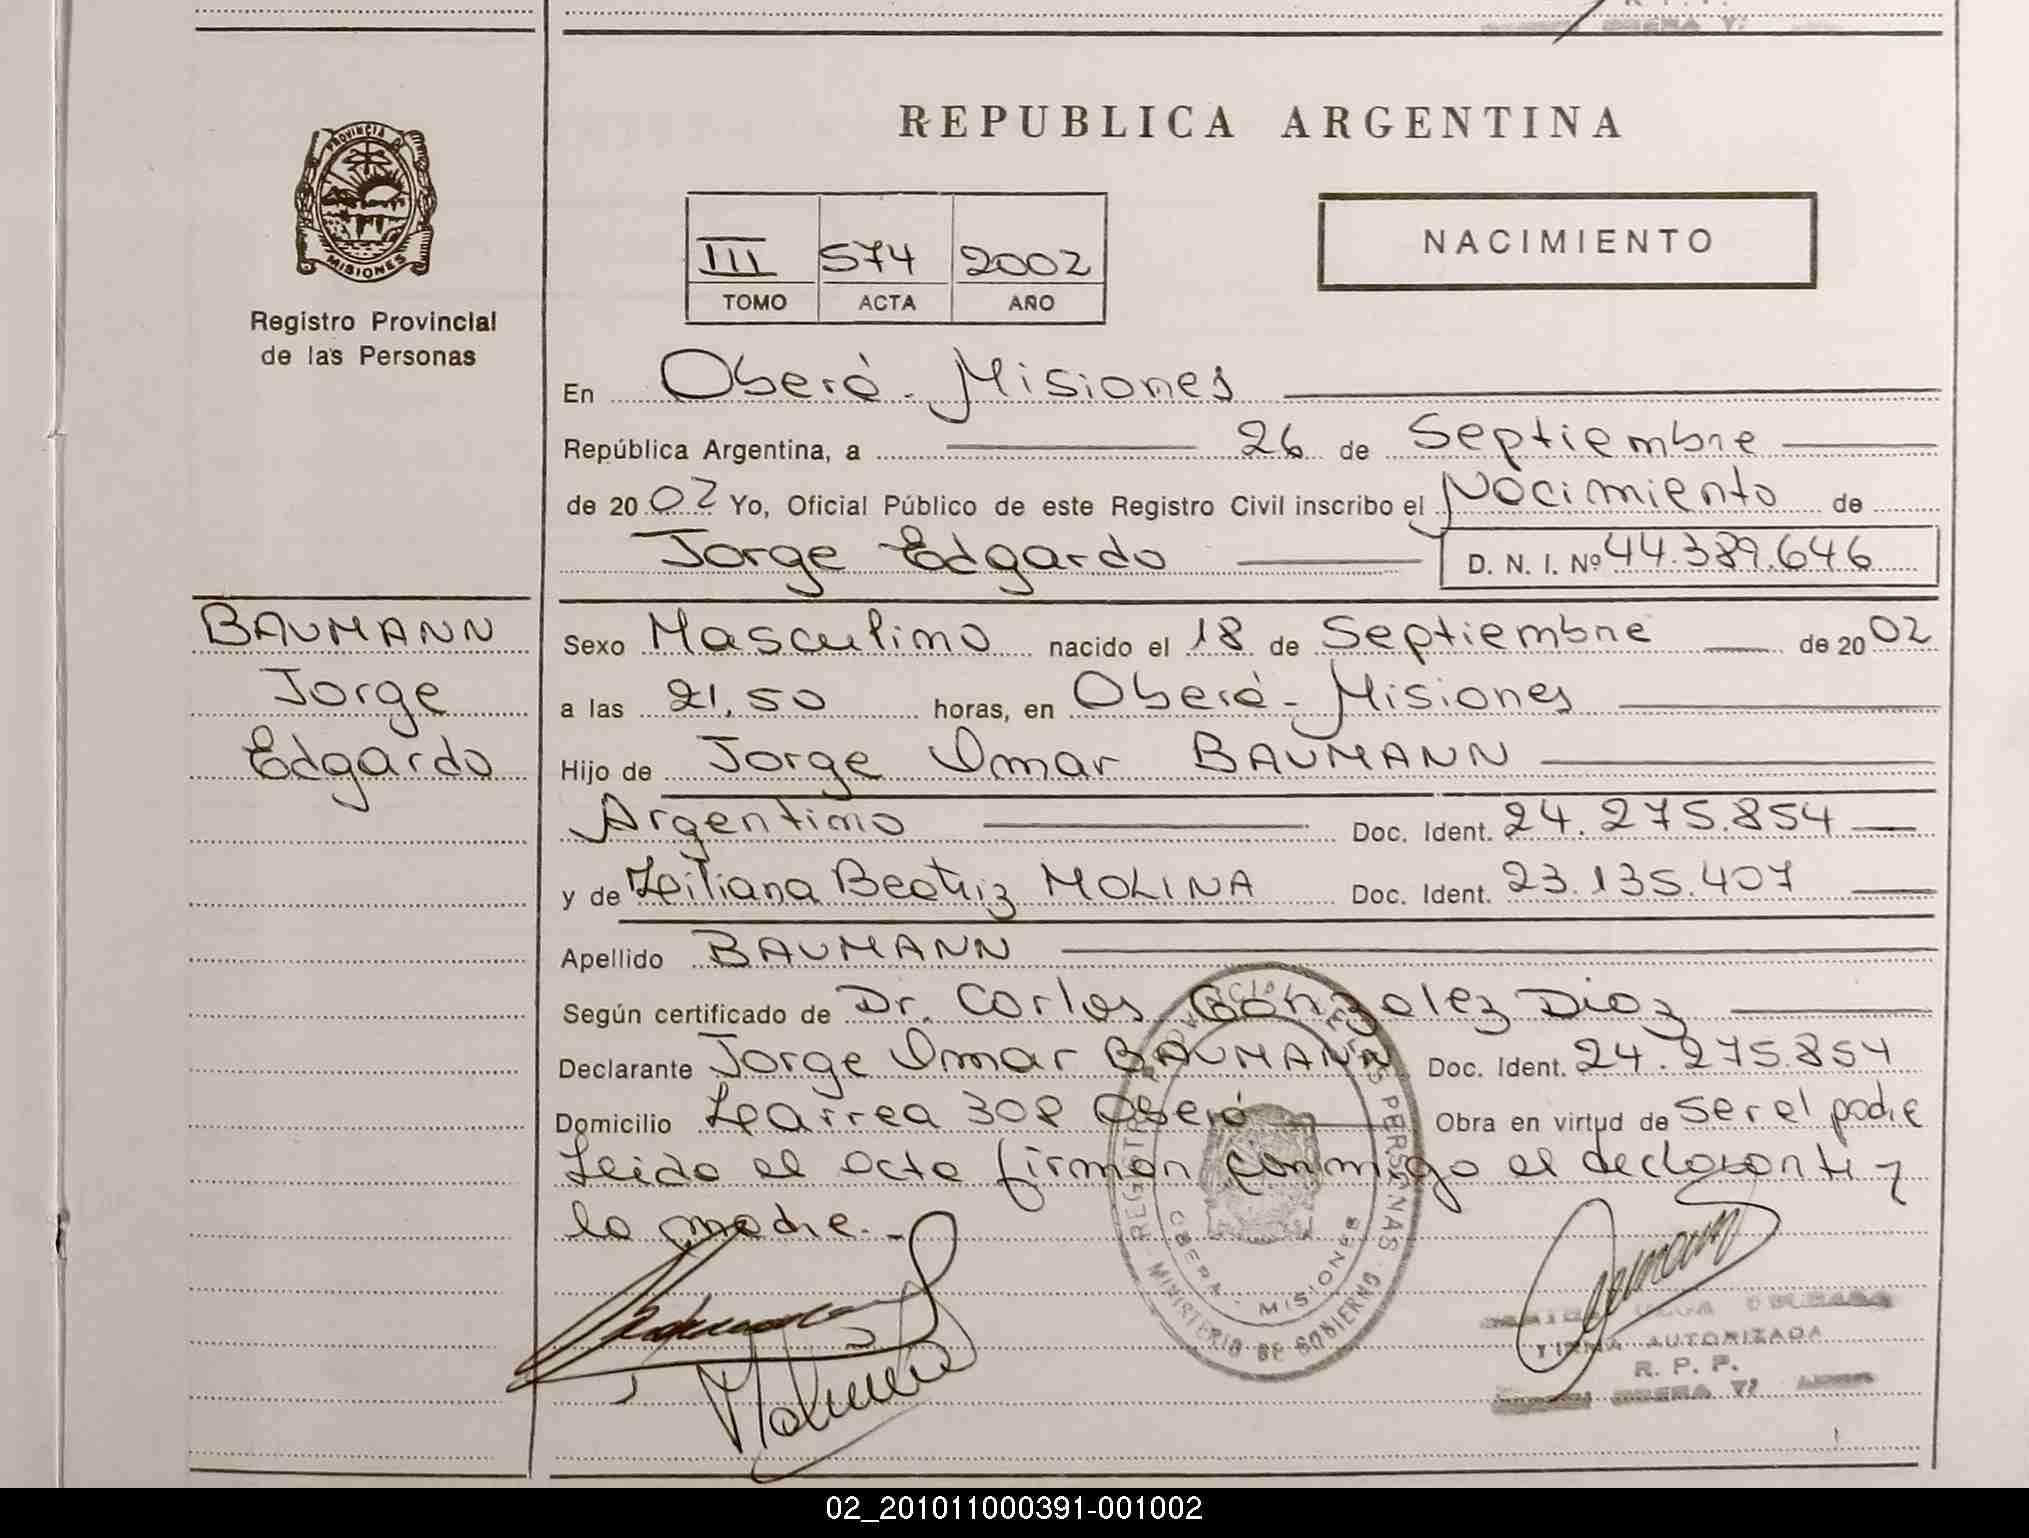 REPUBLICA ARGENTINA
PROVINCIA DE MISIONES
Registro Provincial
de las Personas
III 574 2002
TOMO ACTA AÑO
NACIMIENTO
En Oberá - Misiones
República Argentina, a 26 de Septiembre
de 2002 Yo, Oficial Público de este Registro Civil inscribo el Nacimiento de
Jorge Edgardo D. N. I. Nº 44.389.646
BAUMANN
Jorge
Edgardo
Sexo Masculino nacido el 18 de Septiembre de 2002
a las 21,50 horas, en Oberá - Misiones
Hijo de Jorge Omar BAUMANN
Argentino Doc. Ident. 24.275.854
y de Liliana Beatriz MOLINA Doc. Ident. 23.135.407
Apellido BAUMANN
Según certificado de Dr. Carlos Gonzalez Diaz
Declarante Jorge Omar BAUMANN Doc. Ident. 24.275.854
Domicilio Larrea 308 Oberá Obra en virtud de ser el padre
Leida el acta firman conmigo el declarante y
la madre.-
REGISTRO PROVINCIAL DE LAS PERSONAS
MINISTERIO DE GOBIERNO
OBERA - MISIONES
FIRMA AUTORIZADA
R. P. P.
02_201011000391-001002